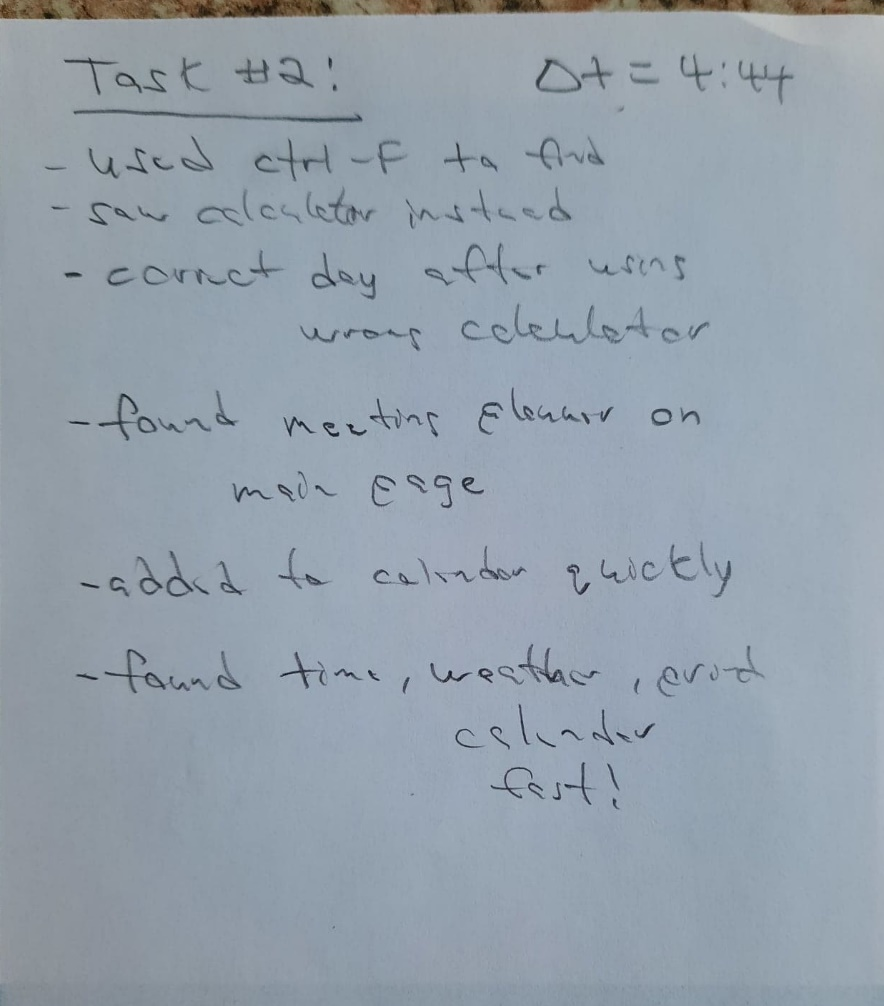 Task #2:    Δt = 4:44
- used ctrl-F to find
- saw calculator instead
- correct day after using
wrong calculator
- found meeting planner on
main page
- added to calendar quickly
- found time, weather,
calendar
fast!